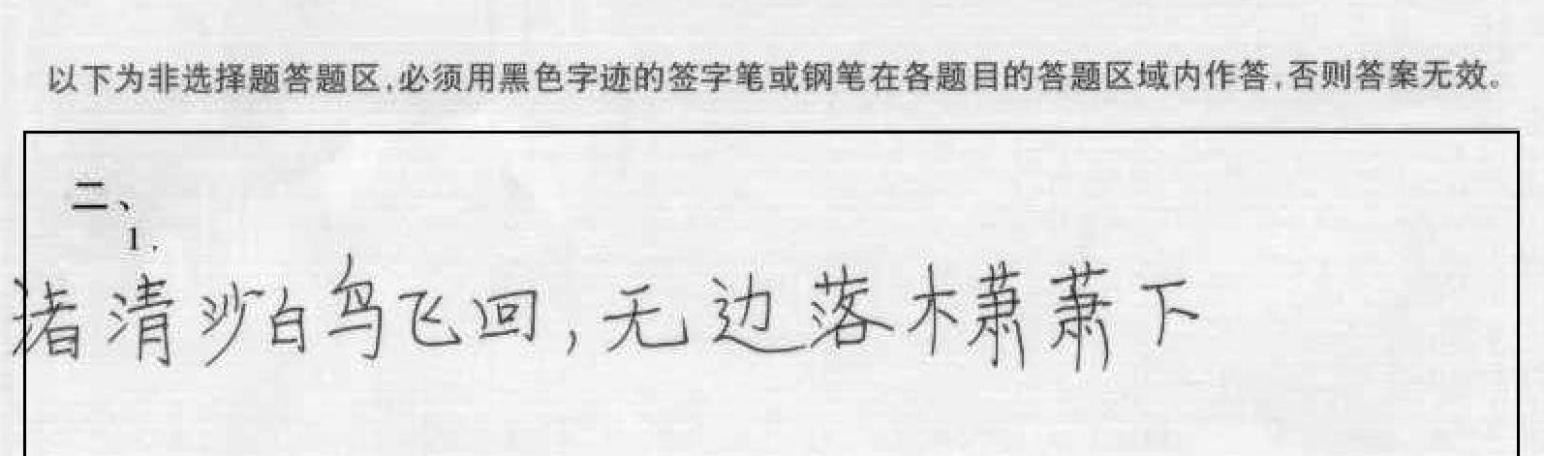 以下为非选择题答题区,必须用黑色字迹的签字笔或钢笔在各题目的答题区域内作答,否则答案无效。
二、
1.
渚清沙白鸟飞回,无边落木萧萧下